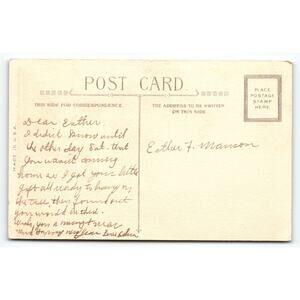 POST CARD
THIS SIDE FOR CORRESPONDENCE.
THE ADDRESS TO BE WRITTEN
ON THIS SIDE
PLACE
POSTAGE
STAMP
HERE
MADE IN U.S.A.
Dear Esther.
I didn't know until
the other day Sat. that
you wasn't coming
home so I got your little
gift all ready to hang on
the tree, then found out
you would in
Wish you a merry xmas
Happy new year
Esther F. Manson